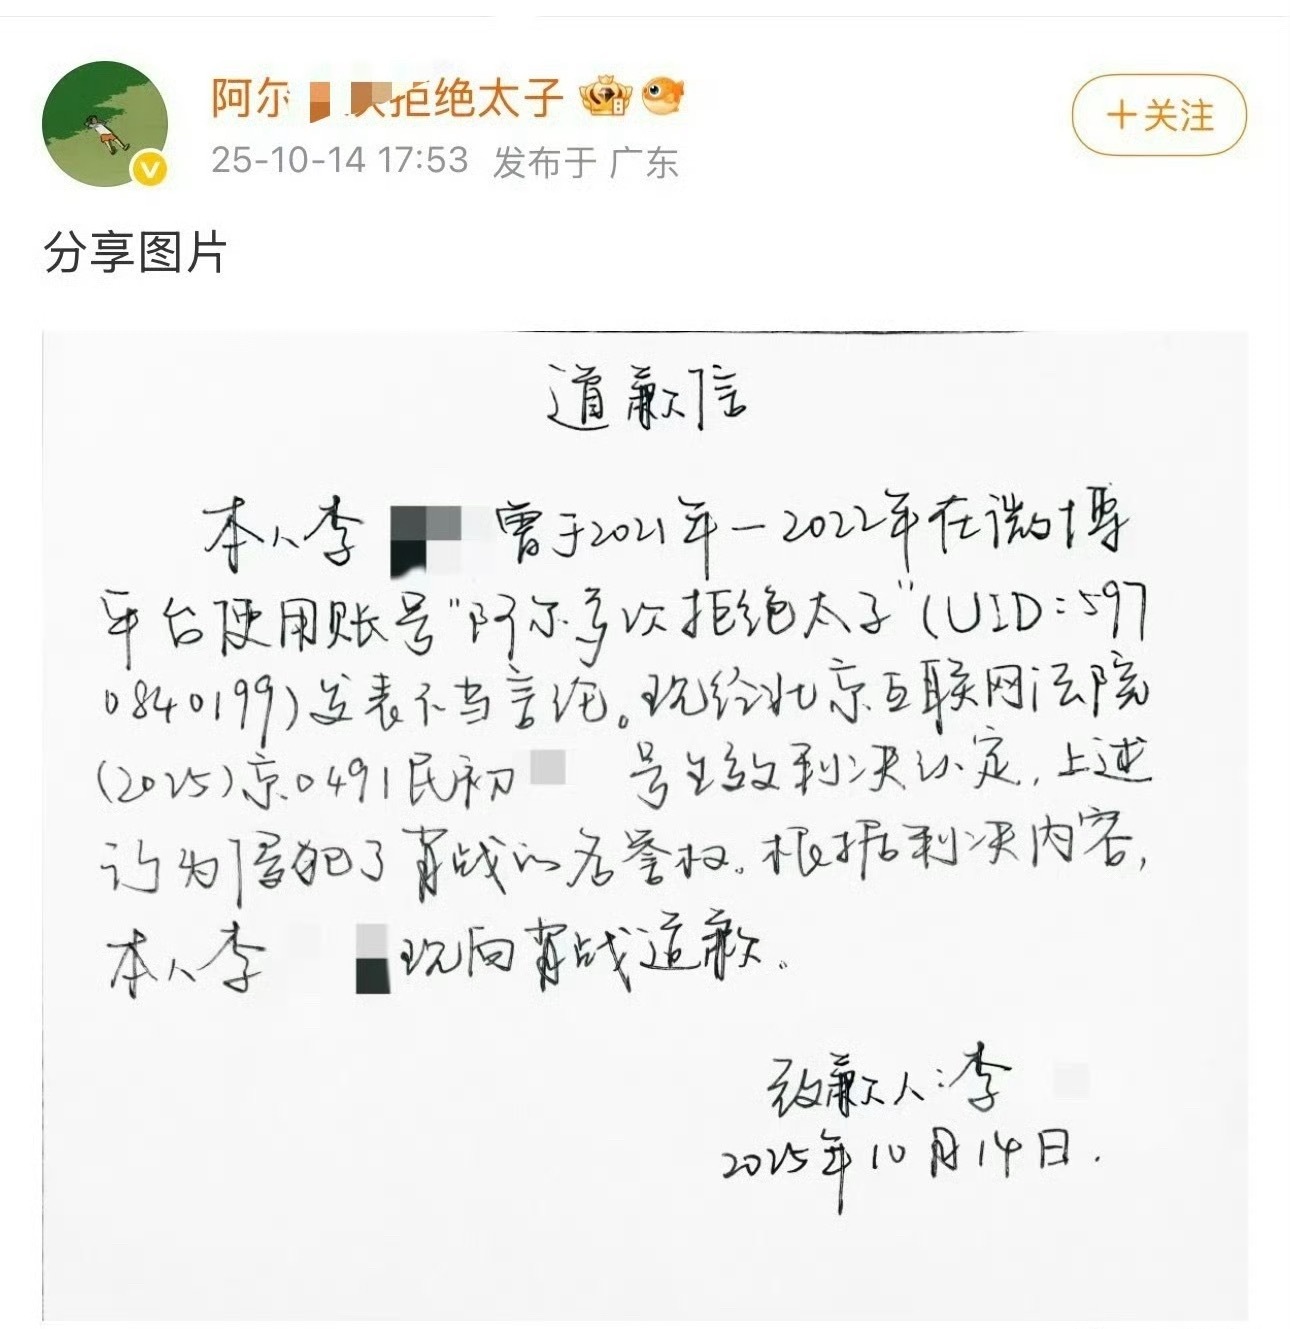 阿尔 次拒绝太子
25-10-14 17:53 发布于 广东
+关注
分享图片
道歉信
本人李 曾于2021年-2022年在微博
平台使用账号"阿尔多次拒绝太子"(UID:597
0840199)发表不当言论。现经北京互联网法院
(2025)京0491民初 号生效判决认定,上述
行为侵犯了肖战的名誉权。根据判决内容,
本人李 现向肖战道歉。
致歉人:李
2025年10月14日.